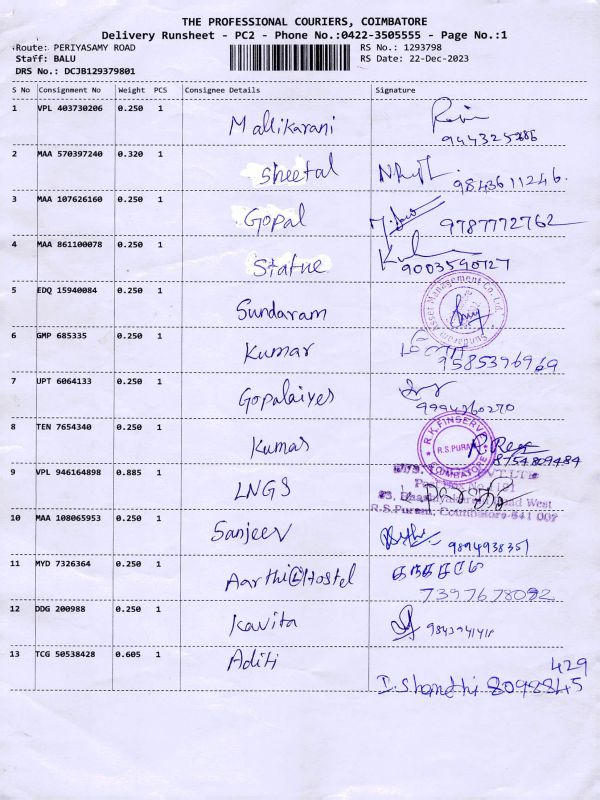 THE PROFESSIONAL COURIERS, COIMBATORE
Delivery Runsheet - PC2 - Phone No.:0422-3505555 - Page No.:1
Route: PERIYASAMY ROAD RS No.: 1293798
Staff: BALU RS Date: 22-Dec-2023
DRS No.: DCJB129379801
S No Consignment No Weight PCS Consignee Details Signature
1 VPL 403730206 0.250 1 Mallikarani
2 MAA 570397240 0.320 1 Sheetal 9843611246.
3 MAA 107626160 0.250 1 Gopal 9787772762
4 MAA 861100078 0.250 1 Statue 9003590727
5 EDQ 15940084 0.250 1 Sundaram Sundaram Asset Management Co. Ltd.
6 GMP 685335 0.250 1 Kumar 9585396969
7 UPT 6064133 0.250 1 Gopalaiyes 9994360270
8 TEN 7654340 0.250 1 Kumas R.K. FINSERV R.S. PURAM COIMBATORE 8754809484
9 VPL 946164898 0.885 1 LNGS
Road West
R.S.Puram, Coimbatore-641 002
10 MAA 108065953 0.250 1 Sanjeev 9894938351
11 MYD 7326364 0.250 1 Aarthi Hostel
7397678092
12 DDG 200988 0.250 1 Kavita 9843941418
13 TCG 50538428 0.605 1 Aditi
429
I. Shandhi 8098845